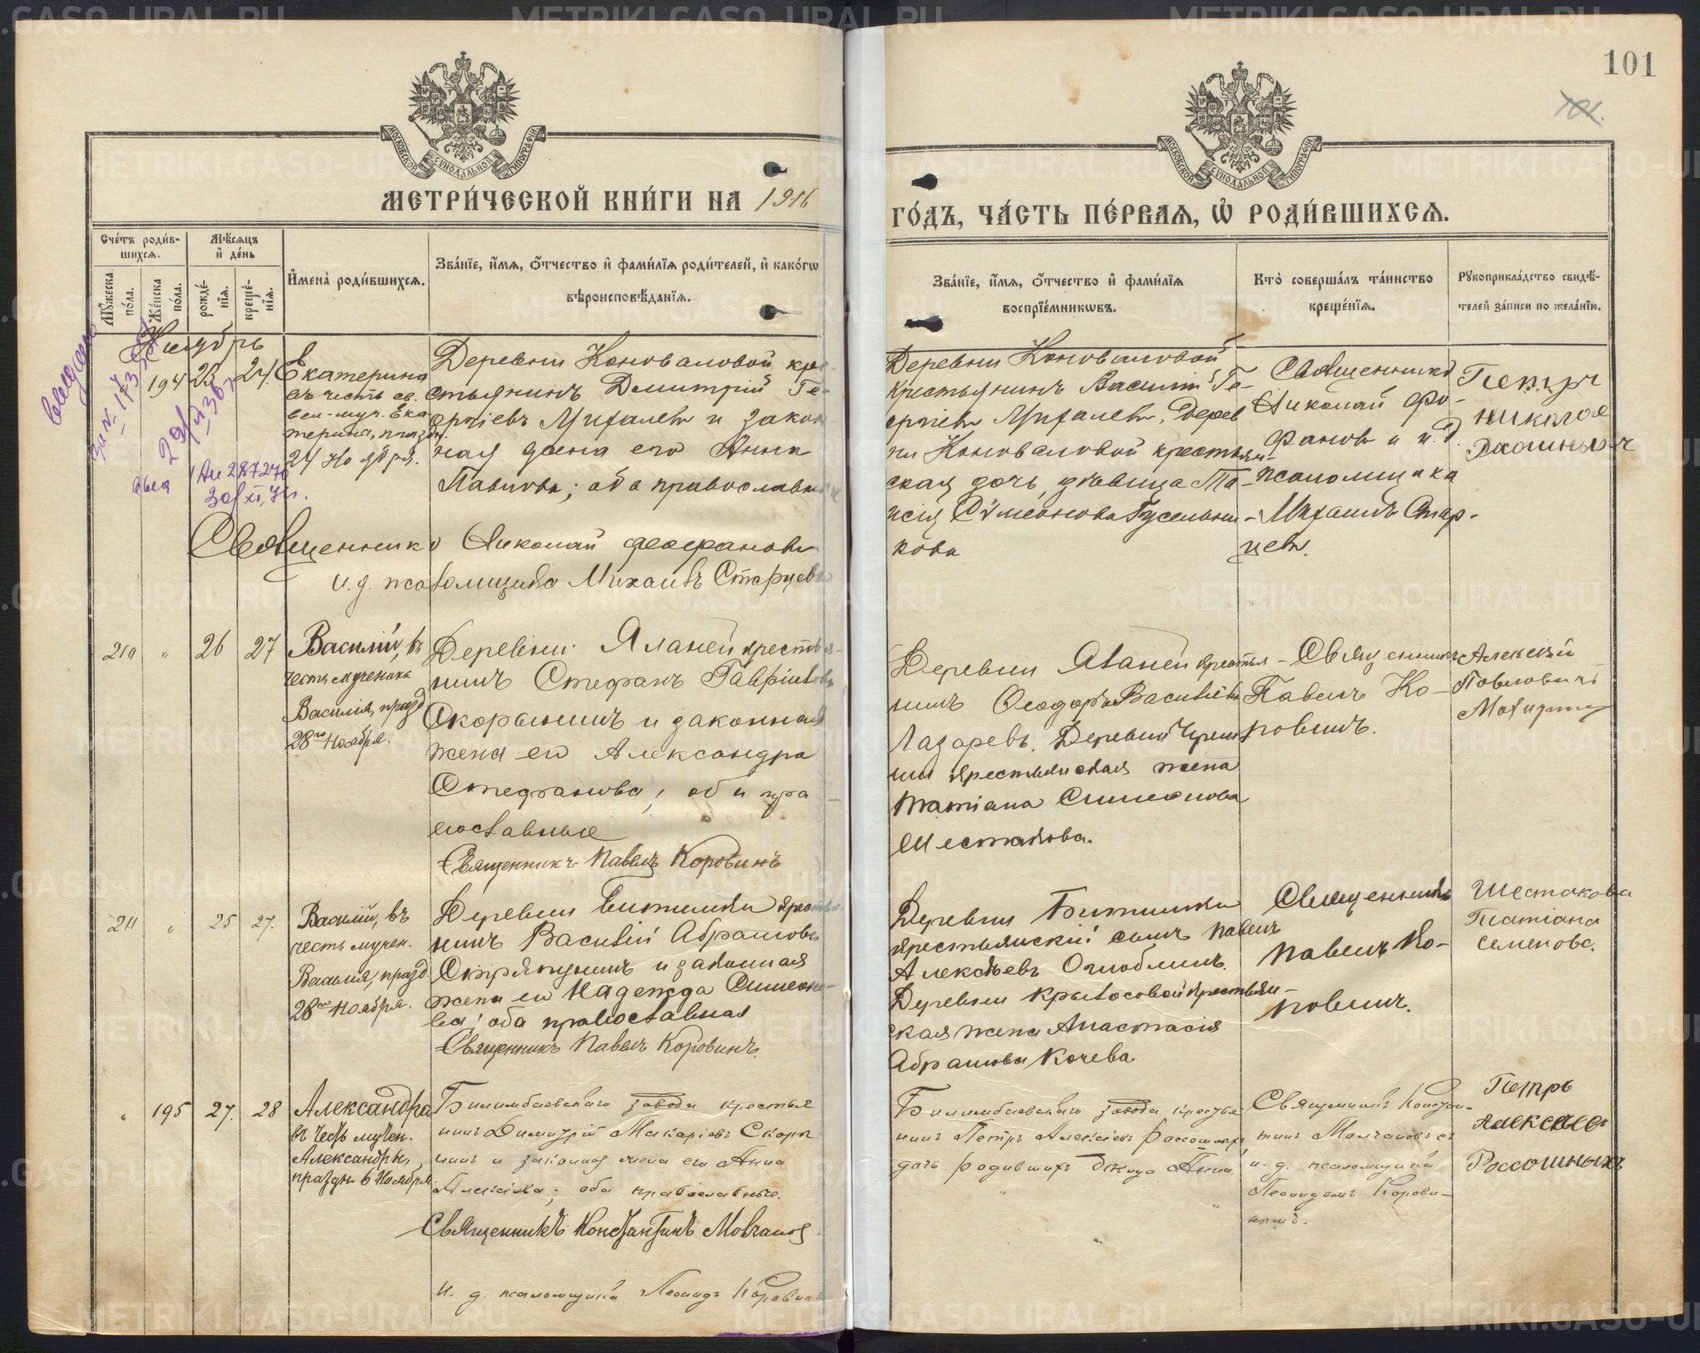 101
101.
МЕТРИ́ЧЕСКОЙ КНИ́ГИ НА 1916
ГО́ДЪ, ЧА́СТЬ ПЕ́РВАЯ, Ѡ҆ РОДИ́ВШИХСЯ.
Сче́тъ роди́в-
шихся.
Мѣ́сяцъ
и҆ де́нь
Мꙋ́жеска
по́ла.
Же́нска
по́ла.
рожде́-
нїѧ.
креще́-
нїѧ.
И҆мена̀ роди́вшихся.
Зва́нїе, и҆́мя, ѻ҆́тчество и҆ фами́лїя роди́телей, и҆ како́гѡ
вѣроисповѣ́данїѧ.
Зва́нїе, и҆́мя, ѻ҆́тчество и҆ фами́лїя
воспрїе́мникѡвъ.
Кто̀ соверша́лъ та́инство
креще́нїѧ.
Рꙋкоприкла́дство свидѣ́-
телей за́писи по жела́нїю.
Ноябрь
194 23 24
Екатерина
въ честь св.
вел-муч. Ека-
терины, празд.
24 ноября.
Деревни Коноваловой кре-
стьянинъ Димитрій Ге-
оргіевъ Михалевъ и закон
ная жена его Анна
Павлова; оба православные
Священникъ Николай Феофановъ
и. д. псаломщика Михаилъ Старцевъ
Деревни Коноваловой
крестьянинъ Василій Ге-
оргіевъ Михалевъ. Дерев
ни Коноваловой крестьян-
ская дочь, дѣвица Та-
исія Сѵмеонова Гусельни-
кова
Священникъ
Николай Фео-
фановъ и и. д.
псаломщика
Михаилъ Стар-
цевъ.
Петръ
Николае
210 " 26 27
Василій, въ
честь мученика
Василія, празд
28го Ноября.
Деревни Яланей крестья-
нинъ Стефанъ Гавріиловъ
Скорынинъ и законная
жена его Александра
Стефанова, оба пра
вославные
Священникъ Павелъ Коровинъ
Деревни Яланей крестья-
нинъ Ѳеодоръ Васильевъ
Лазаревъ. Деревни
крестьянская жена
Татіана Симеонова
Шестакова.
Священникъ
Павелъ Ко-
ровинъ.
Алексѣй
Павловичъ
211 " 25 27.
Василій, въ
честь мучен.
Василія, празд
28го Ноября.
Деревни Битимки крестья
нинъ Василій Абрамовъ
Стряпунинъ и законная
жена его Надежда Симеоно-
ва; оба православныя
Священникъ Павелъ Коровинъ
Деревни Битимки
крестьянскій сынъ Павелъ
Алексѣевъ Оглоблинъ.
Деревни Крылосовой крестьян-
ская жена Анастасія
Абрамова Кочева.
Священникъ
Павелъ Ко-
ровинъ.
Шестакова
Татіана
Семенова.
" 195 27. 28
Александра
въ честь мучен.
Александры,
праздн. 6 Ноября
Билимбаевскаго завода крестья
нинъ Димитрій Макаріевъ Скоры
нинъ и законная жена его Анна
Алексѣева; оба православные.
Священникъ Константинъ Молчановъ
и. д. псаломщика Леонидъ Коровинъ
Билимбаевскаго завода крестья
нинъ Петръ Алексѣевъ Россошныхъ,
дочь родившихъ дѣвица Анна
Священникъ Констан-
тинъ Молчановъ съ
и. д. псаломщика
Леонидомъ Корови-
нымъ.
Петръ
Алексеев
Россошныхъ
METRIKI.GASO-URAL.RU